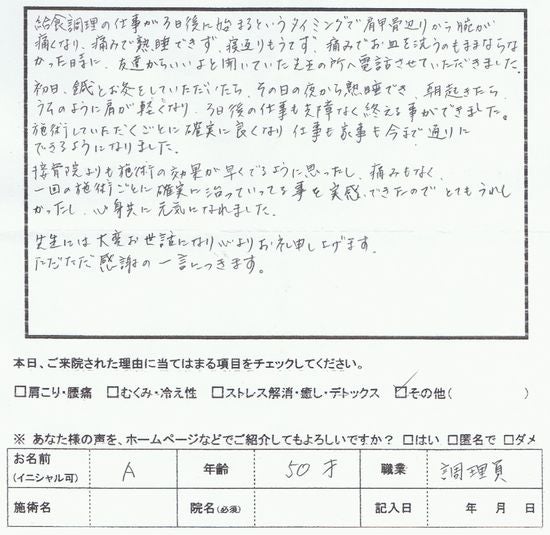 給食調理の仕事が3日後に始まるというタイミングで肩甲骨辺りから腕が
痛くなり、痛みで熟睡できず、寝返りもうてず、痛みでお皿を洗うのもままならな
かった時に、友達からいいよと聞いていた先生の所へ電話させていただきました。
初日、鍼とお灸をしていただいたら、その日の夜から熟睡でき、朝起きたら
うそのように肩が軽くなり、3日後の仕事も支障なく終える事ができました。
施術していただくごとに確実に良くなり仕事も家事も今まで通りに
できるようになりました。
接骨院よりも施術の効果が早くでるように思ったし、痛みもなく、
一回の施術ごとに確実に治っていってる事を実感できたので とてもうれし
かったし、心身共に元気になれました。
先生には大変お世話になり心よりお礼申し上げます。
ただただ感謝の一言につきます。
本日、ご来院された理由に当てはまる項目をチェックしてください。
□肩こり・腰痛 □むくみ・冷え性 □ストレス解消・癒し・デトックス ☑その他( )
※ あなた様の声を、ホームページなどでご紹介してもよろしいですか? □はい □匿名で □ダメ
お名前(イニシャル可) A 年齢 50才 職業 調理員
施術名 院名(必須) 記入日 年 月 日